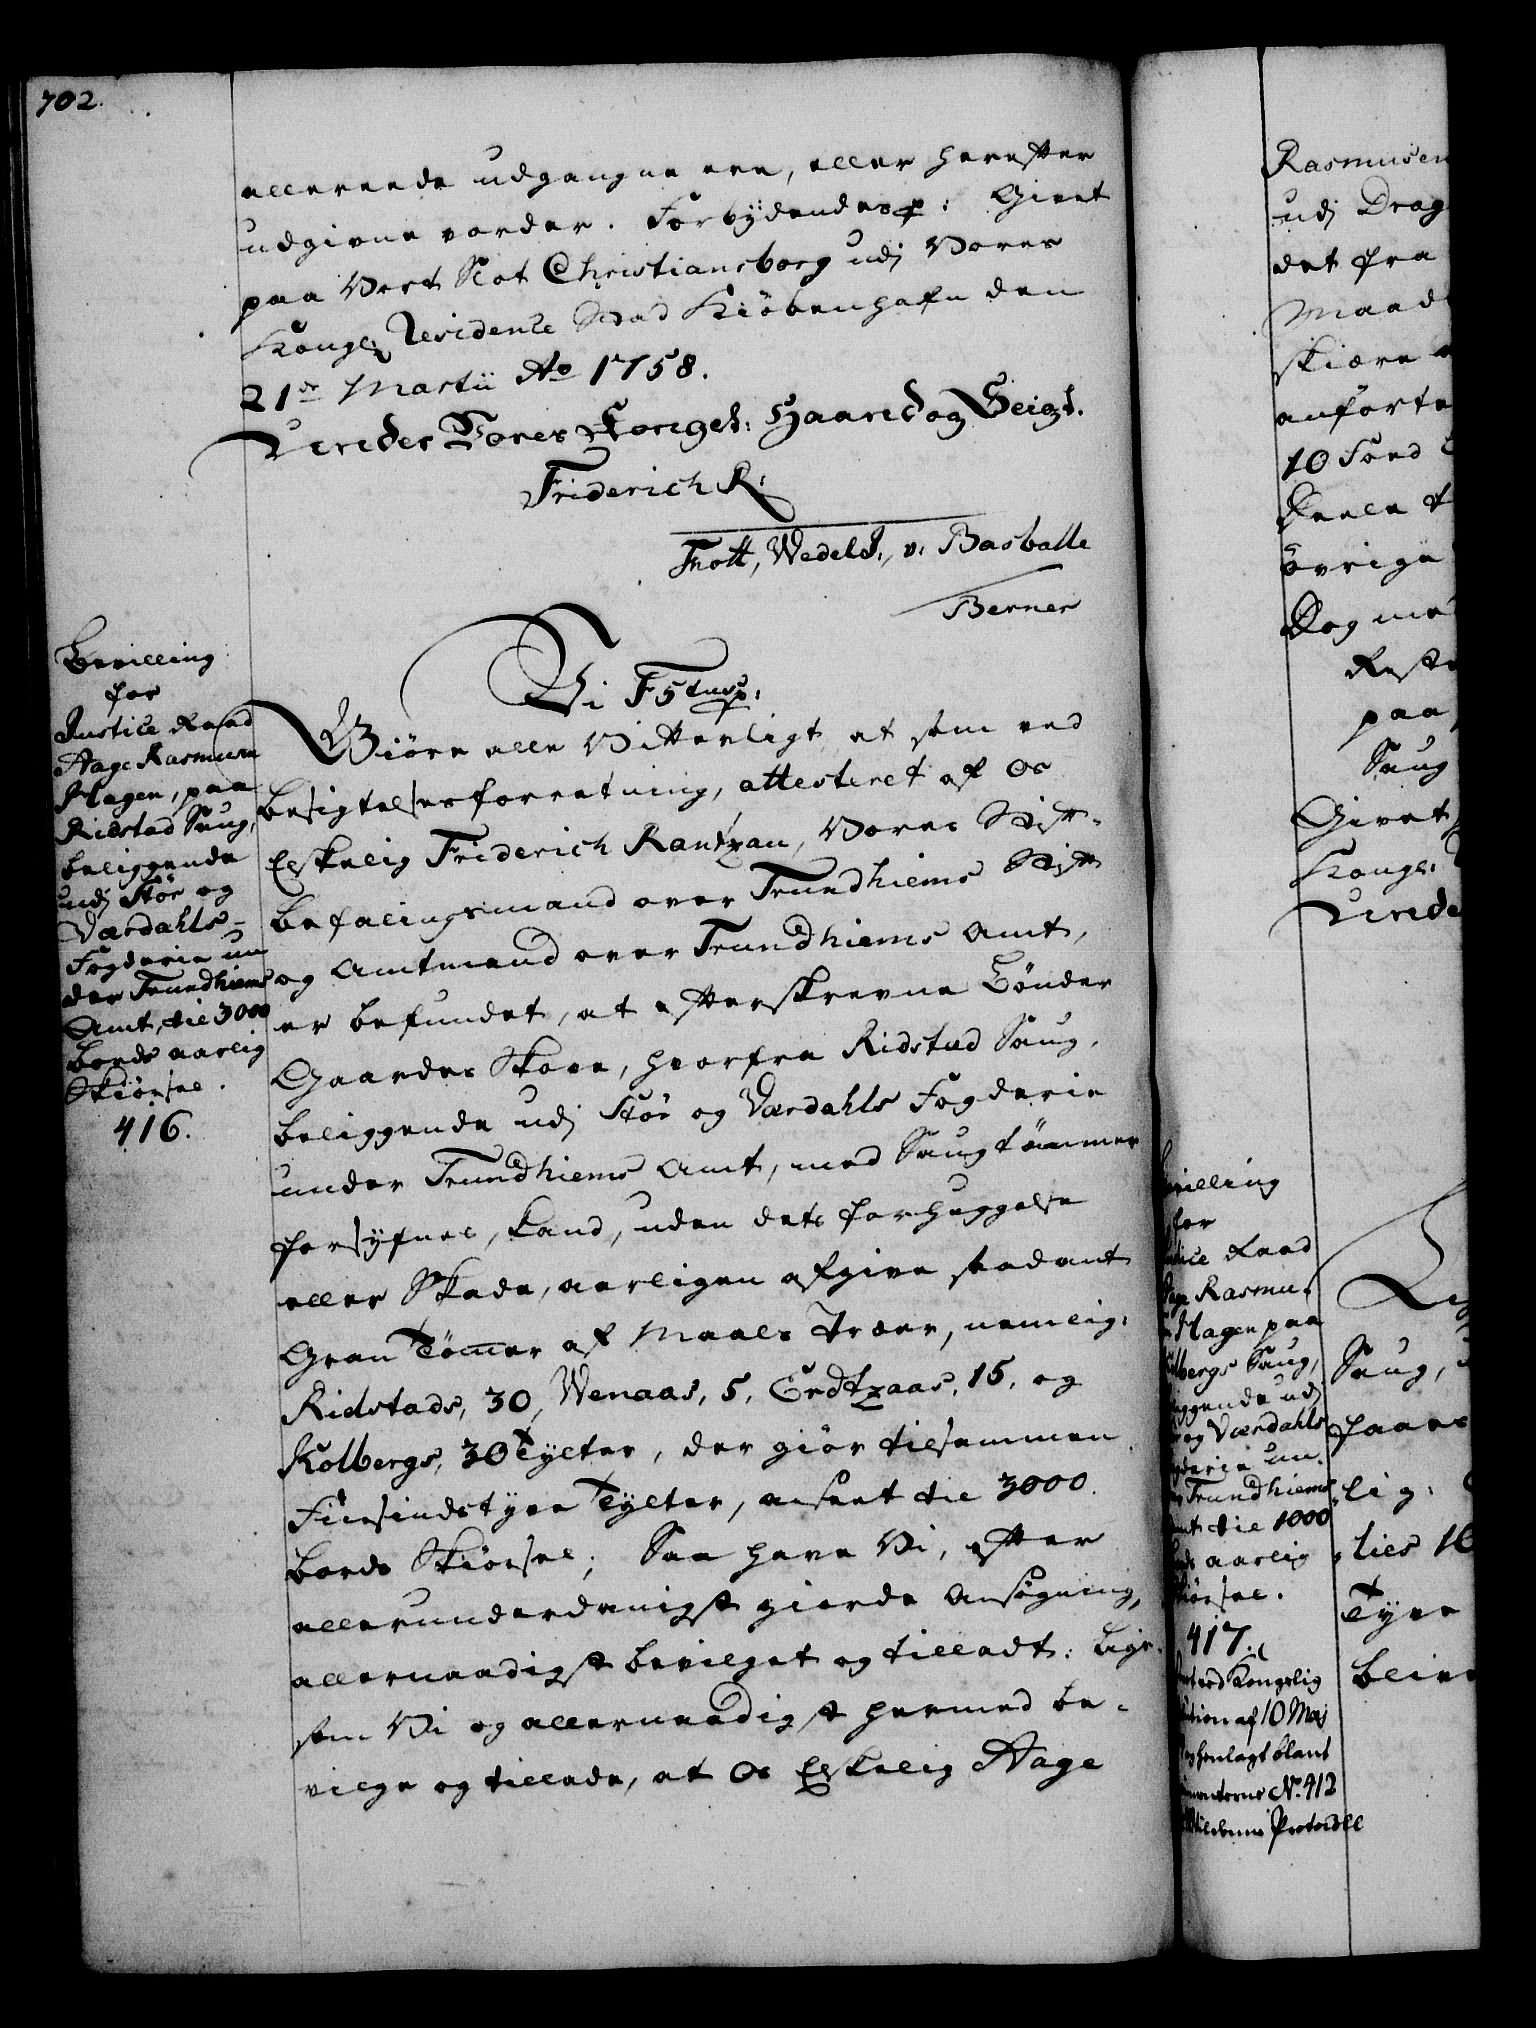 702.
allereede udgangne ere, eller herefter
udgivne vorder. Forbydendes p: Givet
paa Vort Slot Christiansborg udj Vores
Kongel: Residence Stad Kiöbenhafn den
21de Martii Ao 1758.
Under Vores Kongel: Haand og Seigl.
Friderich R:
Thott, Wedels:, v: Basballe
Berner
Bevilling
for
Justice Raad
Aage Rasmusen
Hagen, paa
Ridstad Saug,
beliggende
udj Stör og
Værdahls-
Fogderie un
der Trundhiems
Amt, til 3000
Bords aarlig
Skiörsel.
416.
Vi F5tus p:
Giöre alle Vitterligt, at som ved
besigtelsesforretning, attesteret af Os
Elskelig Friderich Rantzau, Vores Stift-
befalingsmand over Trundhiems Stift
og Amtmand over Trundhiems Amt,
er befundet, at efterskrevne Bönder
Gaardes Skove, hvorfra Ridstad Saug,
beliggende udj Stör og Værdahls Fogderie
under Trundhiems Amt, med Saugtömmer
forsyfnes, kand, uden dets forhuggelse
eller Skade, aarligen afgive saadant
Gran Tömer af Maals Træer, nemlig:
Ridstads, 30, Wenaas, 5, Erdtzaas, 15, og
Kolbergs, 30 Tylter, der giör tilsammen
Fiirsindstyve Tylter, ansent til 3000
bords Skiörsel; Saa have Vi, efter
allerunderdanigst giorde Ansögning,
allernaadigst bevilget og tilladt: Lige-
som Vi og allernaadigst hermed be-
vilge og tillade, at Os Elskelig Aage
Rasmusen
udj Drag
det fra
Maade
skiære
anförte
10 Fond
Deele
övrige
Dog me
Reste
paa
Saug
Givet
Kongl:
Unde
villing
for
Justice Raad
Aage Rasmu-
Hagen paa
Kolbergs Saug,
beliggende udj
og Værdahls
Fogderie un-
Trundhiems
Amt til 1000
aarlig
Skiörsel.
417.
Kongelig
ution af 10 Maj
henlagt blant
No. 412
Protocoll
Saug,
haars
lig:
lies 10
Tyve
bliv